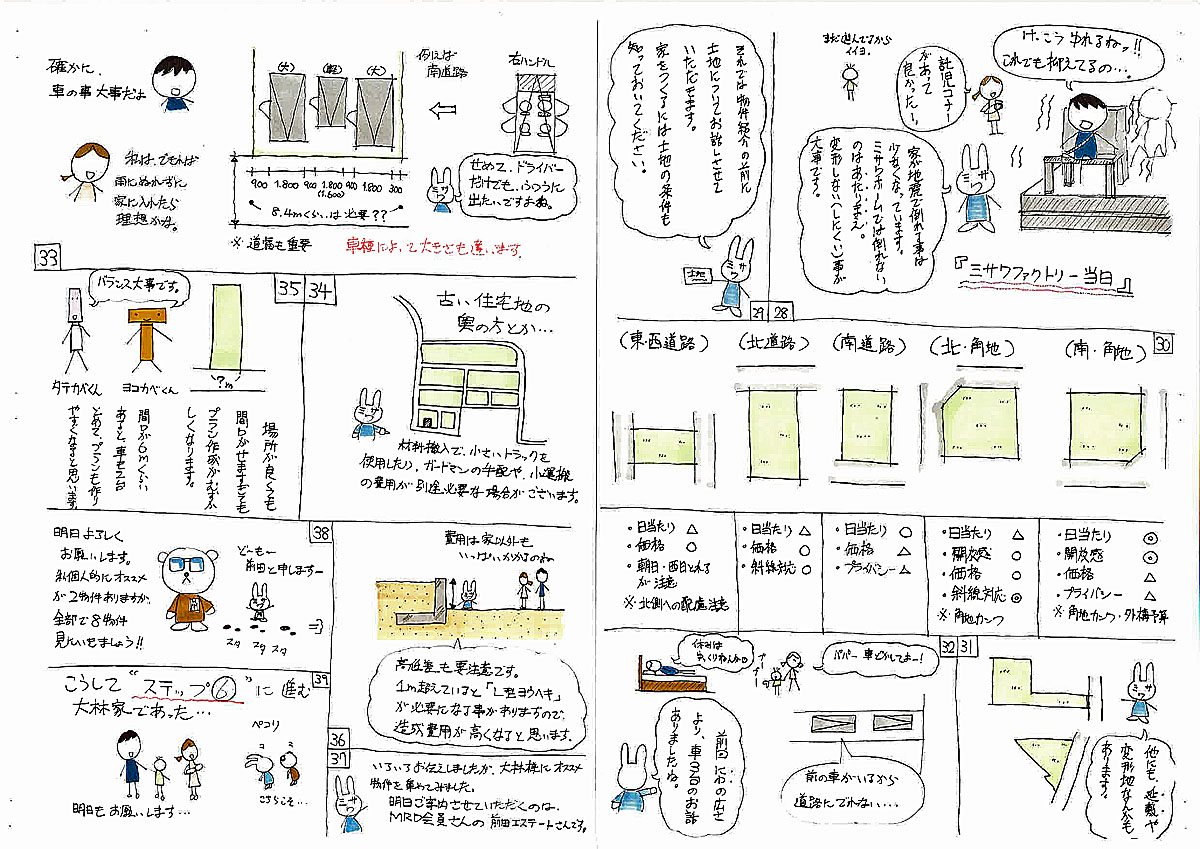 けっこうゆれるねッ!!
これでも抑えてるの…。
託児コーナー
があって
良かったー。
まだ遊んでるから
イイヨ。
家が地震で倒れる事は
少なくなっています。
ミサワホームでは倒れない
のはあたりまえ。
変形しない(しにくい)事が
大事です。
『ミサワファクトリー当日』
28
それでは物件紹介の前に
土地についてお話しさせて
いただきます。
家をつくるには土地の条件も
知っておいてください。
ミサワ
29
30
(南・角地)
(北・角地)
(南道路)
(北道路)
(東・西道路)
・日当たり ◎
・開放感 ◎
・価格 △
・プライバシー △
※角地カンワ・外構予算
・日当たり △
・開放感 ○
・価格 ○
・斜線対応 ◎
※角地カンワ
・日当たり ○
・価格 △
・プライバシー △
・日当たり △
・価格 ○
・斜線対応 ○
・日当たり △
・価格 ○
・朝日・西日とれる
が注意
※北側への配慮注意
31
他にも、延敷や
変形地なんかも
あります。
32
休みは
ゆっくりねんかの
パパー車どかしてぇー!
前の車がいるから
道路にでれない....
前回にわの広さ
より、車3台のお話
ありましたね。
確かに、
車の事大事だよ
私は、できれば
雨にぬれずに
家に入れたら
理想かな。
(大)
(軽)
(大)
例えば
南道路
右ハンドル
せめて、ドライバー
だけでも、ふつうに
出たいですよね。
900 1.800 900 1.800 900 1.800 300
(1.600)
8.4mくらいは必要??
※道幅も重要
車種によって大きさも違います。
33
34
古い住宅地の
奥の方とか…
材料搬入で、小さいトラックを
使用したり、ガードマンの手配や、小運搬
の費用が別途必要な場合がございます。
35
バランス大事です。
タテカベくん
ヨコカベくん
?m
場所が良くても
間口がせますぎても
プラン作成がむずか
しくなります。
間口が6mくらい
あると、車も2台
とめて、プランも作り
やすくなると思います
費用は家以外も
いっぱいかかるのね
高低差も要注意です。
1m超えていると「L型ヨウヘキ」
が必要になる事がありますので、
造成費用が高くなると思います。
36
37
いろいろお伝えしましたが、大林様にオススメ
物件を集めてみました。
明日ご案内させていただくのは、
MRD会員さんの前田エステートさんです。
38
明日よろしく
お願いします。
私個人的にオススメ
が2物件ありますが、
全部で8物件
見にいきましょう!!
どーもー
前田と申しますー
スタ スタ スタ
39
こうして"ステップ⑥"に進む
大林家であった…
ペコリ
こちらこそ…
明日もお願いします…